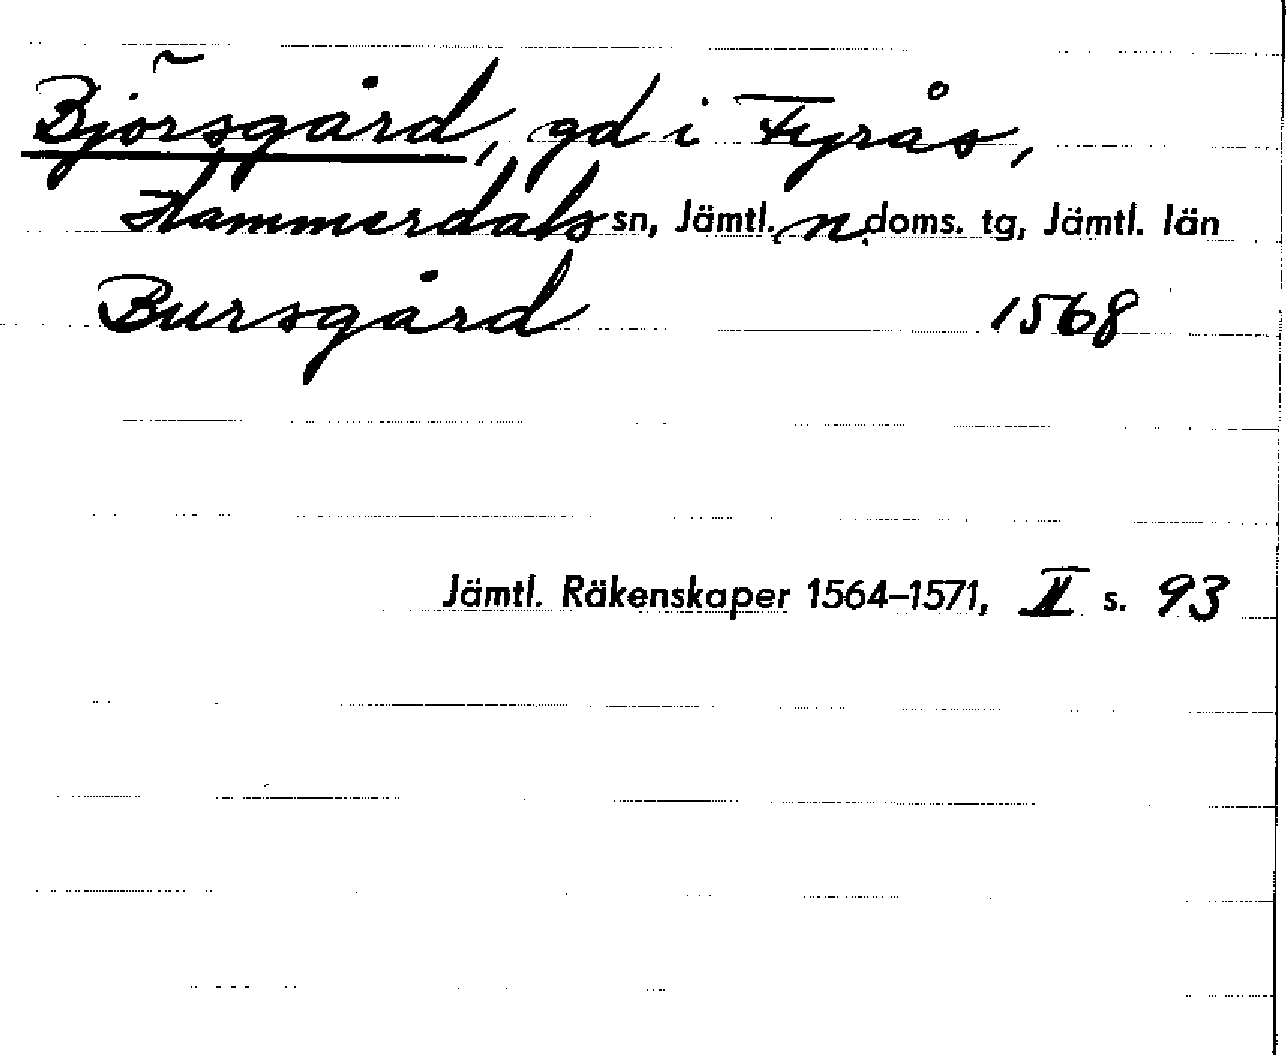 Björsgård, gd i Fyrås,
Hammerdals sn, Jämtl. n doms. tg, Jämtl. län
Bursgård 1568
Jämtl. Räkenskaper 1564–1571, II s. 93